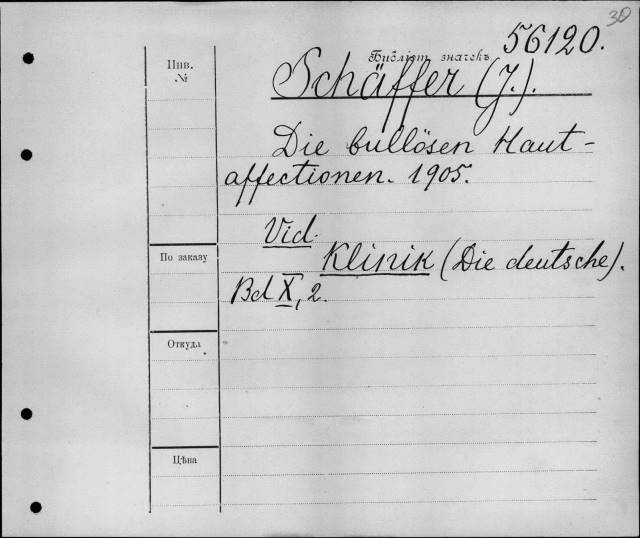 30
Библіот. значекъ 56120.
Инв.
№
Schäffer (J.).
Die bullösen Haut-
affectionen. 1905.
Vid.
По заказу
Klinik (Die deutsche).
Bd X, 2.
Откуда
Цѣна